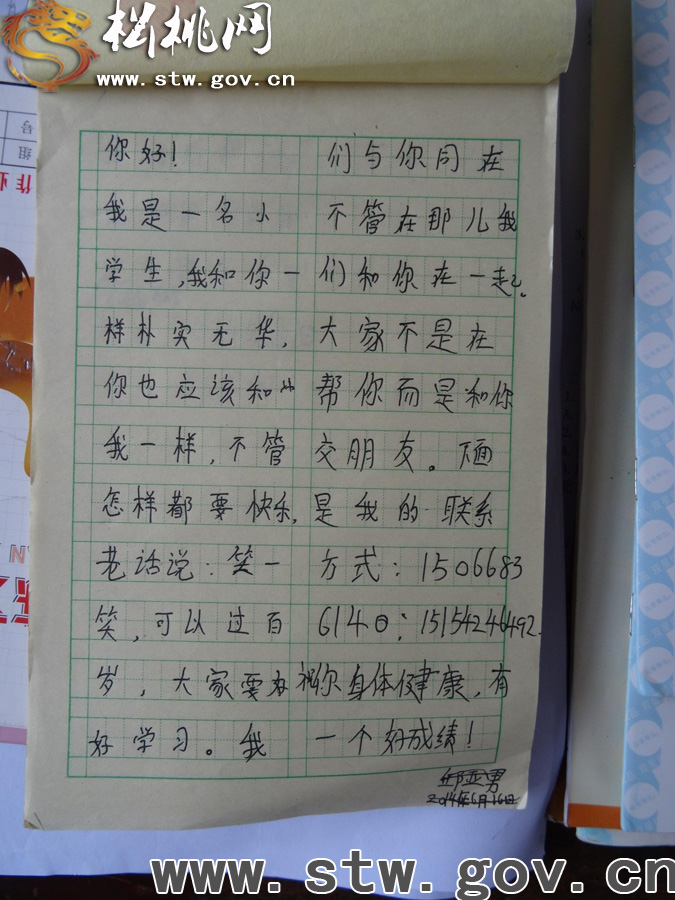 松桃网
www.stw.gov.cn
你好！
我是一名小
学生，我和你一
样朴实无华，
你也应该和
我一样，不管
怎样都要快乐，
老话说：笑一
笑，可以过百
岁，大家要好
好学习。我
们与你同在
不管在那儿我
们和你在一起。
大家不是在
帮你而是和你
交朋友。下面
是我的联系
方式：1506683
6140；15154246492.
祝你身体健康，有
一个好成绩！
邱亚男
2014年6月16日
www.stw.gov.cn